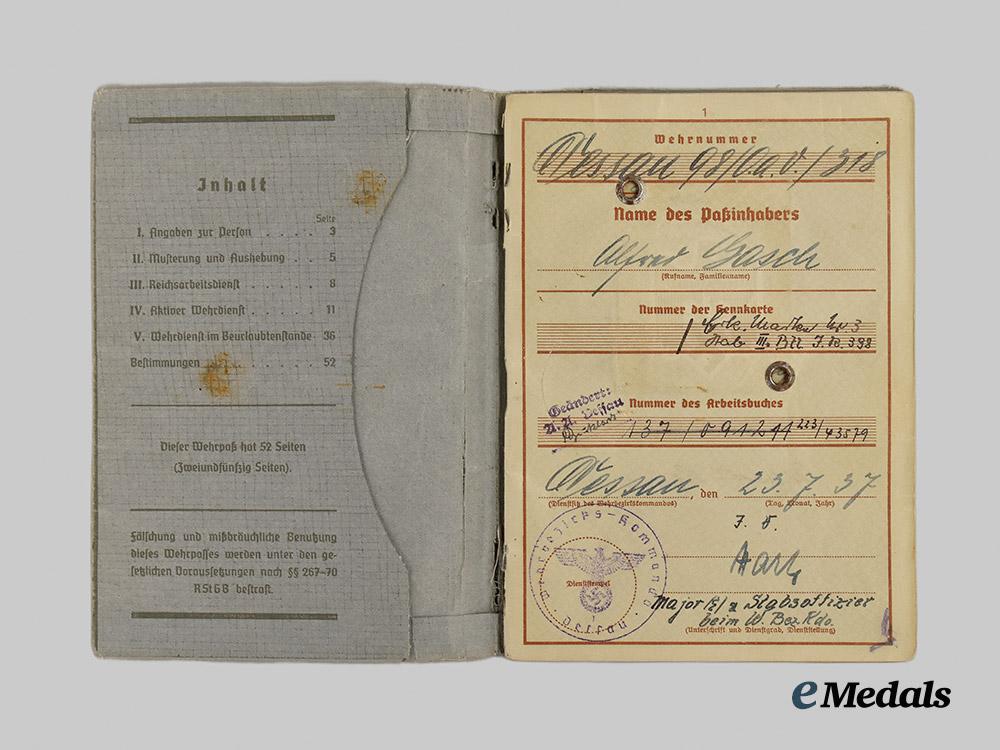 Inhalt
Seite
I. Angaben zur Person . . . . . 3
II. Musterung und Aushebung . . 5
III. Reichsarbeitsdienst . . . . . . 8
IV. Aktiver Wehrdienst . . . . . . 11
V. Wehrdienst im Beurlaubtenstande · 36
Bestimmungen . . . . . . . . 52
Dieser Wehrpaß hat 52 Seiten
(Zweiundfünfzig Seiten).
Fälschung und mißbräuchliche Benutzung
dieses Wehrpasses werden unter den ge-
setzlichen Voraussetzungen nach §§ 267–70
RStGB bestraft.
1
Wehrnummer
Dessau 98/ /318
Name des Paßinhabers
Alfred Gasch
(Rufname, Familienname)
Nummer der Kennkarte
Erk. Marken Nr 3
Stab III. Btl J.R. 398
Geändert:
Dessau
Nummer des Arbeitsbuches
137/091211 223/43579
Dessau, den 23. 7. 37
(Dienstsitz des Wehrbezirkskommandos) (Tag, Monat, Jahr)
Wehrbezirks-Kommando · Dessau
Dienststempel
1
J. V.
Major (E) u Stabsoffizier
beim W. Bez Kdo.
(Unterschrift und Dienstgrad, Dienststellung)
eMedals